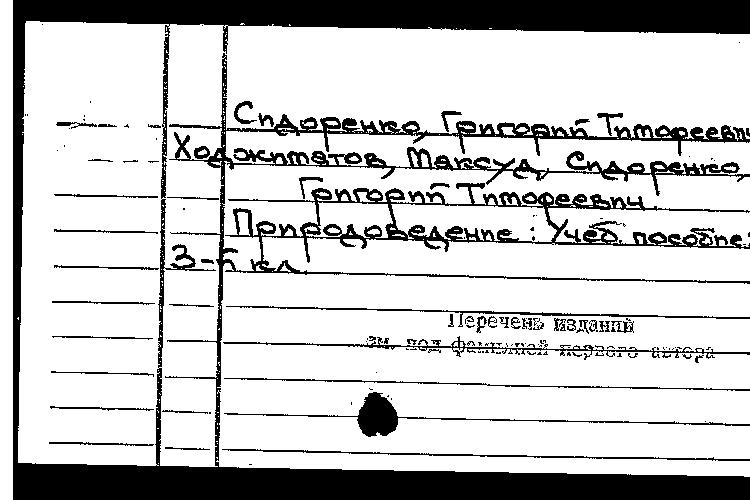 Сидоренко, Григорий Тимофеевич
Ходжиматов, Максуд, Сидоренко,
Григорий Тимофеевич.
Природоведение: Учеб. пособие:
3-й кл
Перечень изданий
см. под фамилией первого автора